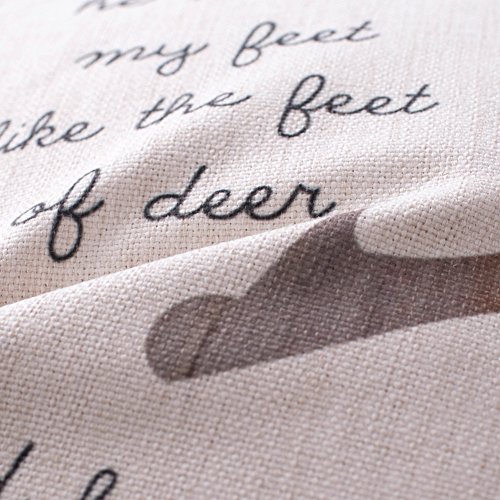 he
my feet
like the feet
of deer